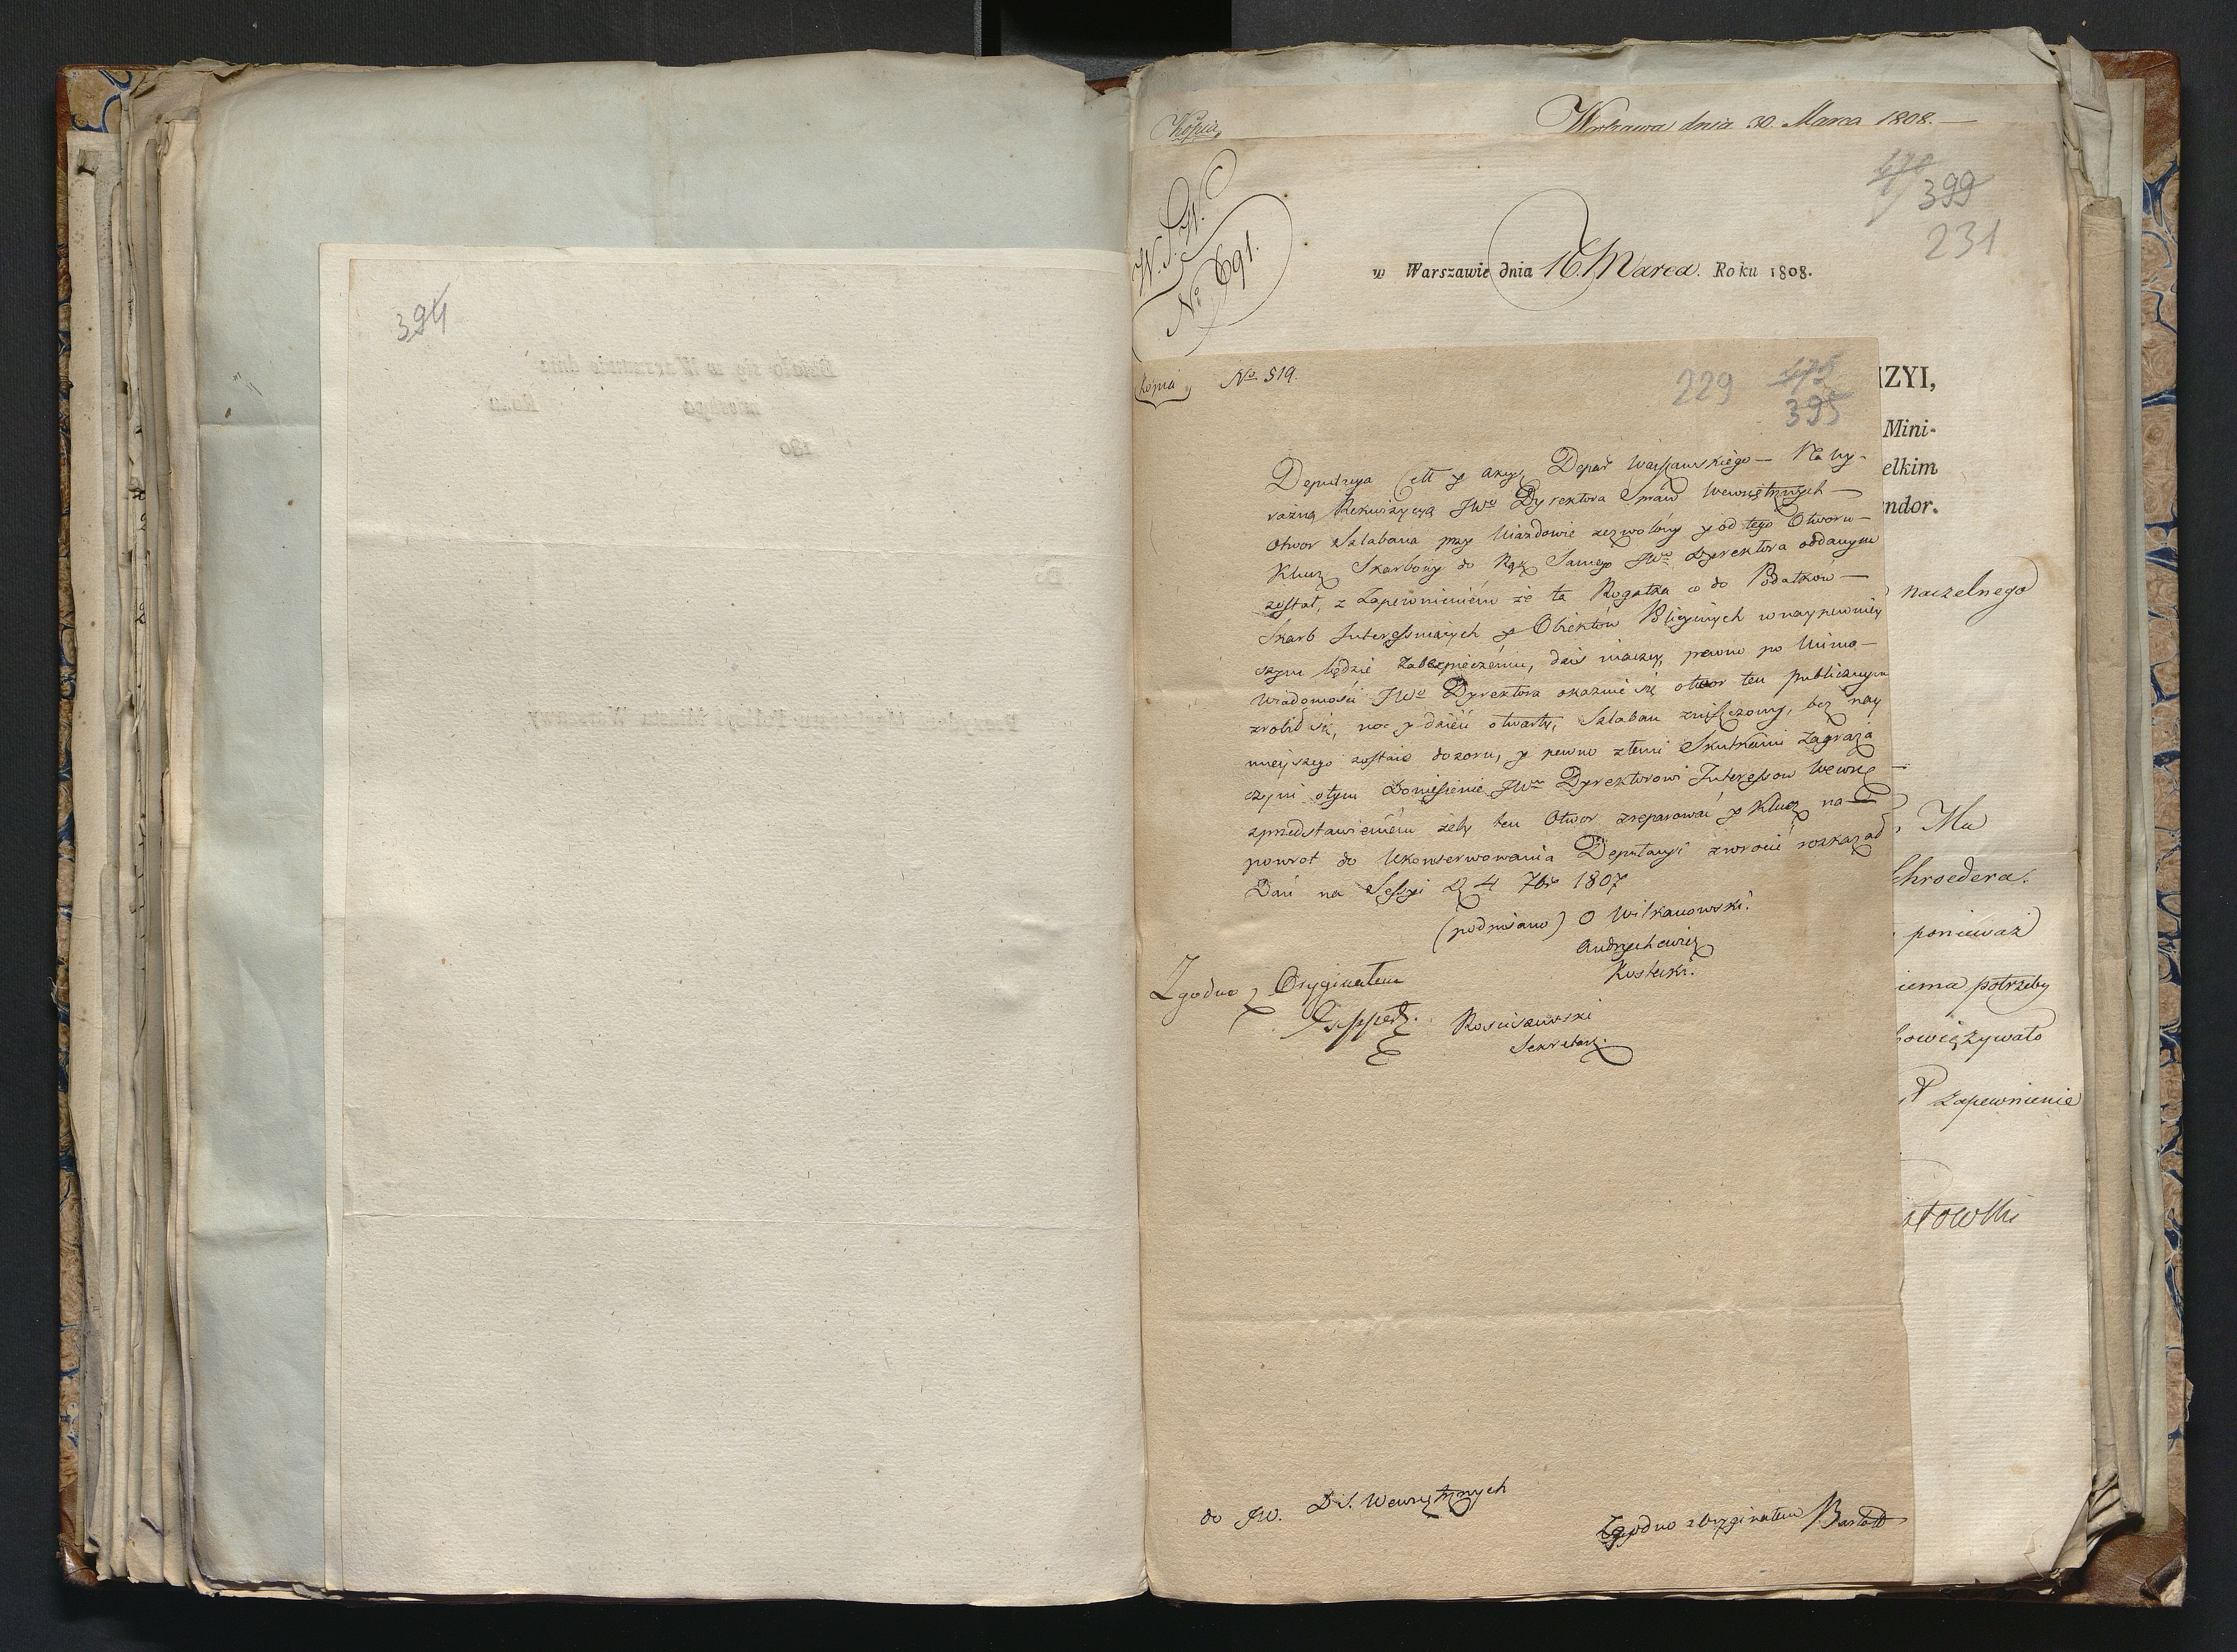 394
Działo się w Warszawie dnia
miesiąca Roku
180
Do
Prezydent Municypalności i Policyi Miasta Warszawy
Kopia,
Warszawa dnia 30. Marca 1808.—
470
399
231
W.S.W.
No 691.
w Warszawie dnia 16. Marca. Roku 1808.
IZYI,
Mini-
elkim
ndor.
naczelnego
, Mu
Schroedera.
, ponieważ
iema potrzeby
bowięzywało
zapewnienie
atowski
Kopia No 519.
229 475
395
Deputacya Cell y Akcyz Depart Warszawskiego — Na wy-
razną Rekwizycyą JWo Dyrektora Spraw Wewnętrznych —
Otwor Szlabana przy Uiazdowie zezwolony y od tego Otworu —
Klucz Skarbowy do Rąk Samego JWo Dyrektora oddanym
został, z zapewnieniem że ta Rogatka co do Podatków —
Skarb Interessuiących y Obiektów Policyinych w naypewniey
szym będzie Zabezpieczeniu, dziś inaczey, pewno po Mimo —
Wiadomości JWo Dyrektora okazuie się otwor ten publicznym
zrobił się, noc y dzień otwarty, Szlaban zniszczony, bez nay
mnieyszego zostaie dozoru, y pewno złemi Skutkami zagraża
czyni o tym Doniesienie JWu Dyrektorowi Interessow Wewnę —
z przedstawieniem żeby ten Otwor zreparować y Klucz na —
powrot do Ukonserwowania Deputacyi zwrocić rozkazał
Dań na Sessyi d 4 7br 1807
(podpisano) O Wilkanowski.
Andrychewicz
Kostecki.
Zgodno z Oryginałem
Geppert. Rosciszewski
Sekretarz.
do JW. D.S. Wewnętrznych
Zgodno z Oryginałem